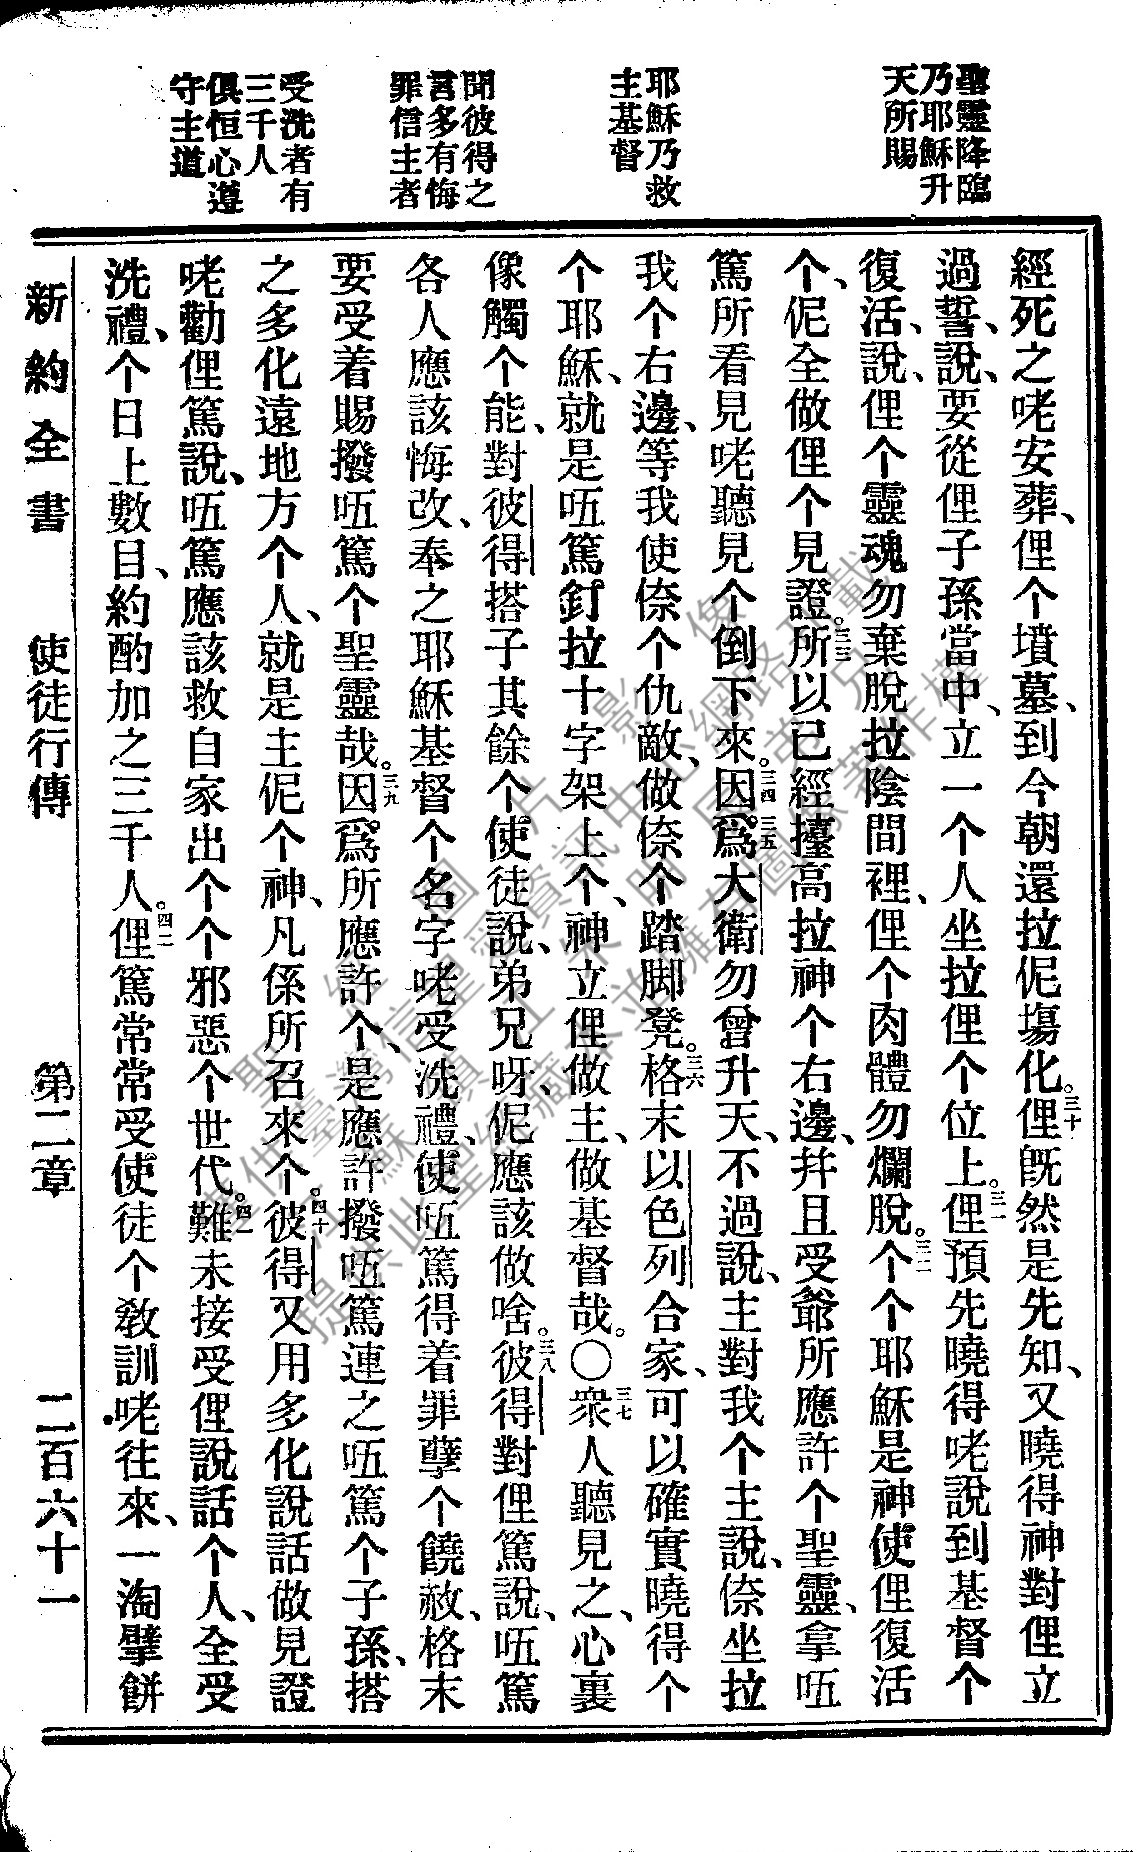 聖靈降臨
乃耶穌升
天所賜
耶穌乃救
主基督
聞彼得之
言多有悔
罪信主者
受洗者有
三千人
俱恒心遵
守主道
經死之咾安葬、俚个墳墓、到今朝還拉伲塲化。三十俚旣然是先知、又曉得神對俚立
過誓、說、要從俚子孫當中、立一个人坐拉俚个位上。三一俚預先曉得咾說到基督个
復活、說、俚个靈魂勿棄脫拉陰間裡、俚个肉體勿爛脫。三二个个耶穌是神使俚復活
个、伲全做俚个見證。三三所以已經擡高拉神个右邊、幷且受爺所應許个聖靈、拿㕶
篤所看見咾聽見个倒下來。三四因爲三五大衛勿曾升天、不過說、主對我个主說、倷坐拉
我个右邊、等我使倷个仇敵、做倷个踏脚凳。三六格末以色列合家、可以確實曉得个
个耶穌、就是㕶篤釘拉十字架上个、神立俚做主、做基督哉。〇三七衆人聽見之、心裏
像觸个能、對彼得搭子其餘个使徒說、弟兄呀、伲應該做啥。三八彼得對俚篤說、㕶篤
各人應該悔改、奉之耶穌基督个名字咾受洗禮、使㕶篤得着罪孽个饒赦、格末
要受着賜撥㕶篤个聖靈哉。三九因爲所應許个、是應許撥㕶篤連之㕶篤个子孫、搭
之多化遠地方个人、就是主伲个神、凡係所召來个。四十彼得又用多化說話做見證
咾勸俚篤說、㕶篤應該救自家出个个邪惡个世代。四一難末接受俚說話个人、全受
洗禮、个日上數目、約酌加之三千人。四二俚篤常常受使徒个敎訓咾往來、一淘擘餅
新約全書
使徒行傳
第二章
二百六十一
聖經圖片影像